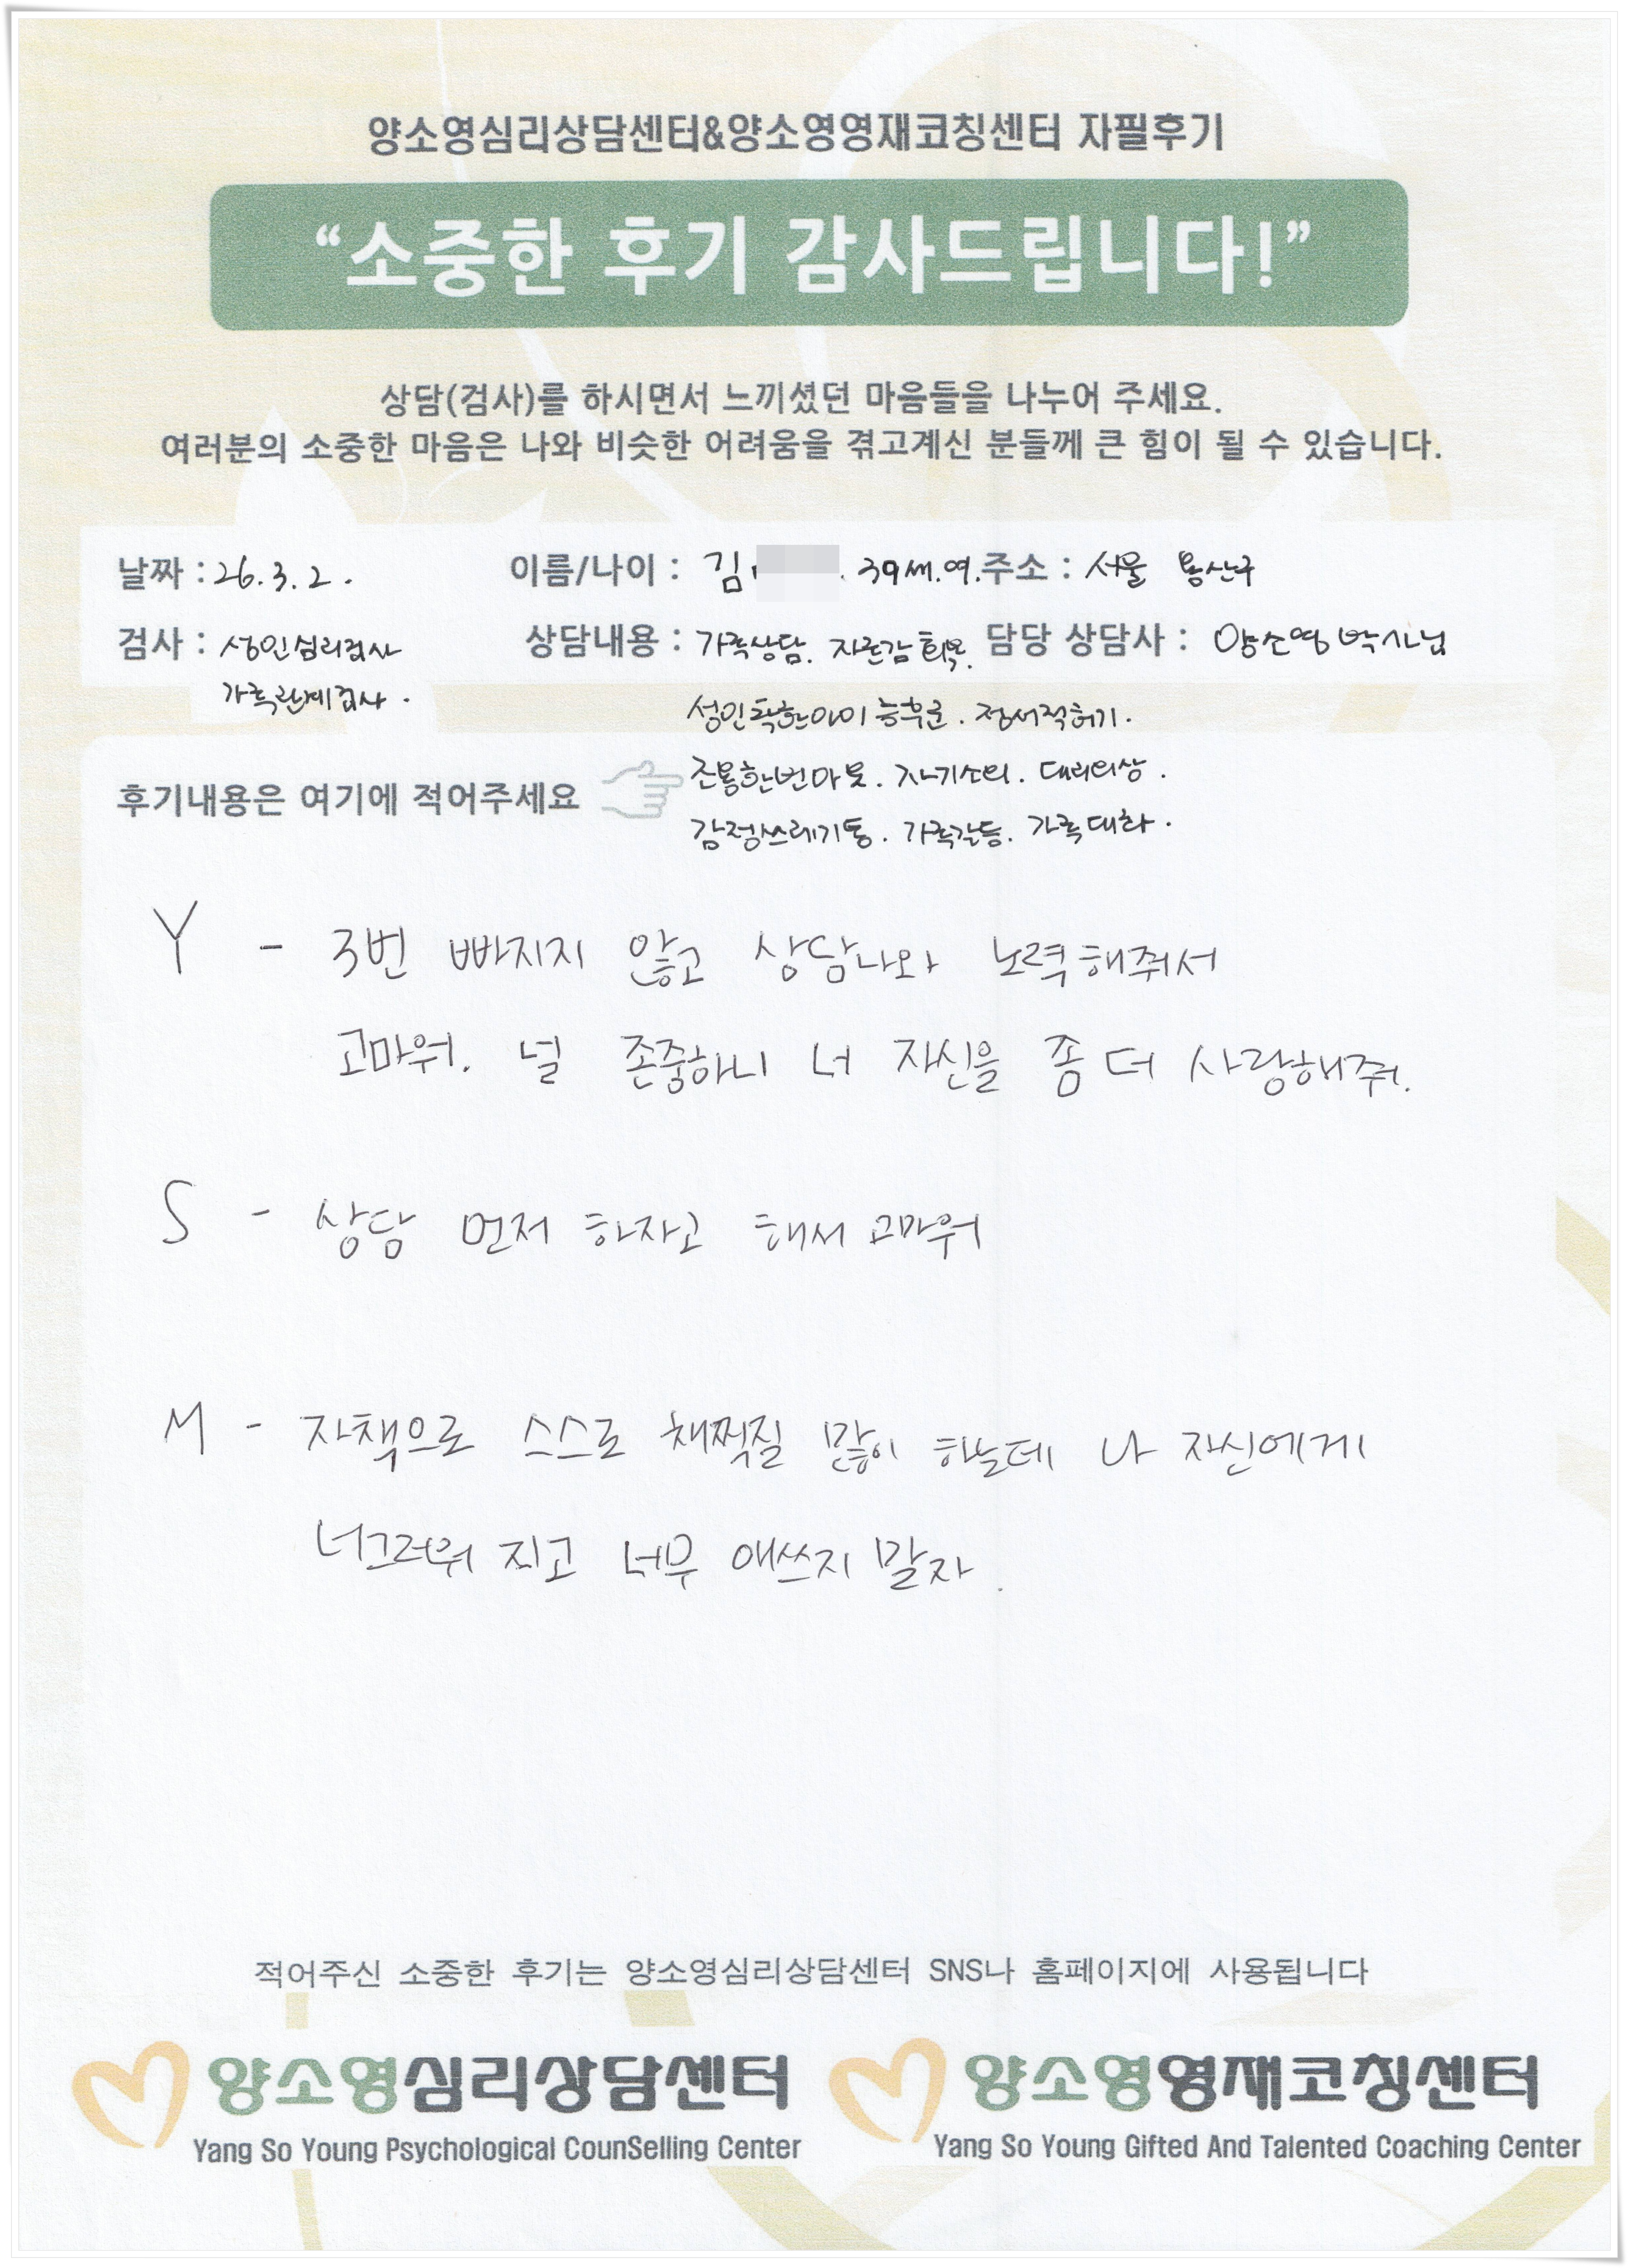 양소영심리상담센터&양소영영재코칭센터 자필후기
“소중한 후기 감사드립니다!”
상담(검사)를 하시면서 느끼셨던 마음들을 나누어 주세요.
여러분의 소중한 마음은 나와 비슷한 어려움을 겪고계신 분들께 큰 힘이 될 수 있습니다.
날짜 : 26.3.2. 이름/나이 : 김 . 39세.여. 주소 : 서울 용산구
검사 : 성인심리검사 상담내용 : 가족상담. 자존감 회복. 담당 상담사 : 양소영 박사님
가족관계검사.
성인착한아이 증후군. 정서적허기.
후기내용은 여기에 적어주세요
조용한번아웃. 자기소외. 대리외상.
감정쓰레기통. 가족갈등. 가족대화.
Y - 3번 빠지지 않고 상담나와 노력해줘서
고마워. 널 존중하니 너 자신을 좀 더 사랑해줘.
S - 상담 먼저 하자고 해서 고마워
M - 자책으로 스스로 채찍질 많이 하는데 나 자신에게
너그러워 지고 너무 애쓰지 말자.
적어주신 소중한 후기는 양소영심리상담센터 SNS나 홈페이지에 사용됩니다
양소영심리상담센터 양소영영재코칭센터
Yang So Young Psychological CounSelling Center Yang So Young Gifted And Talented Coaching Center